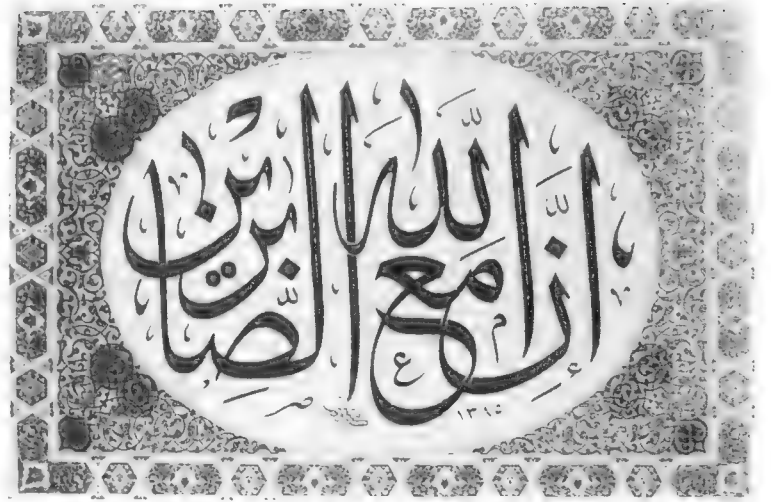 إن الله مع الصابرين
١٣١٥